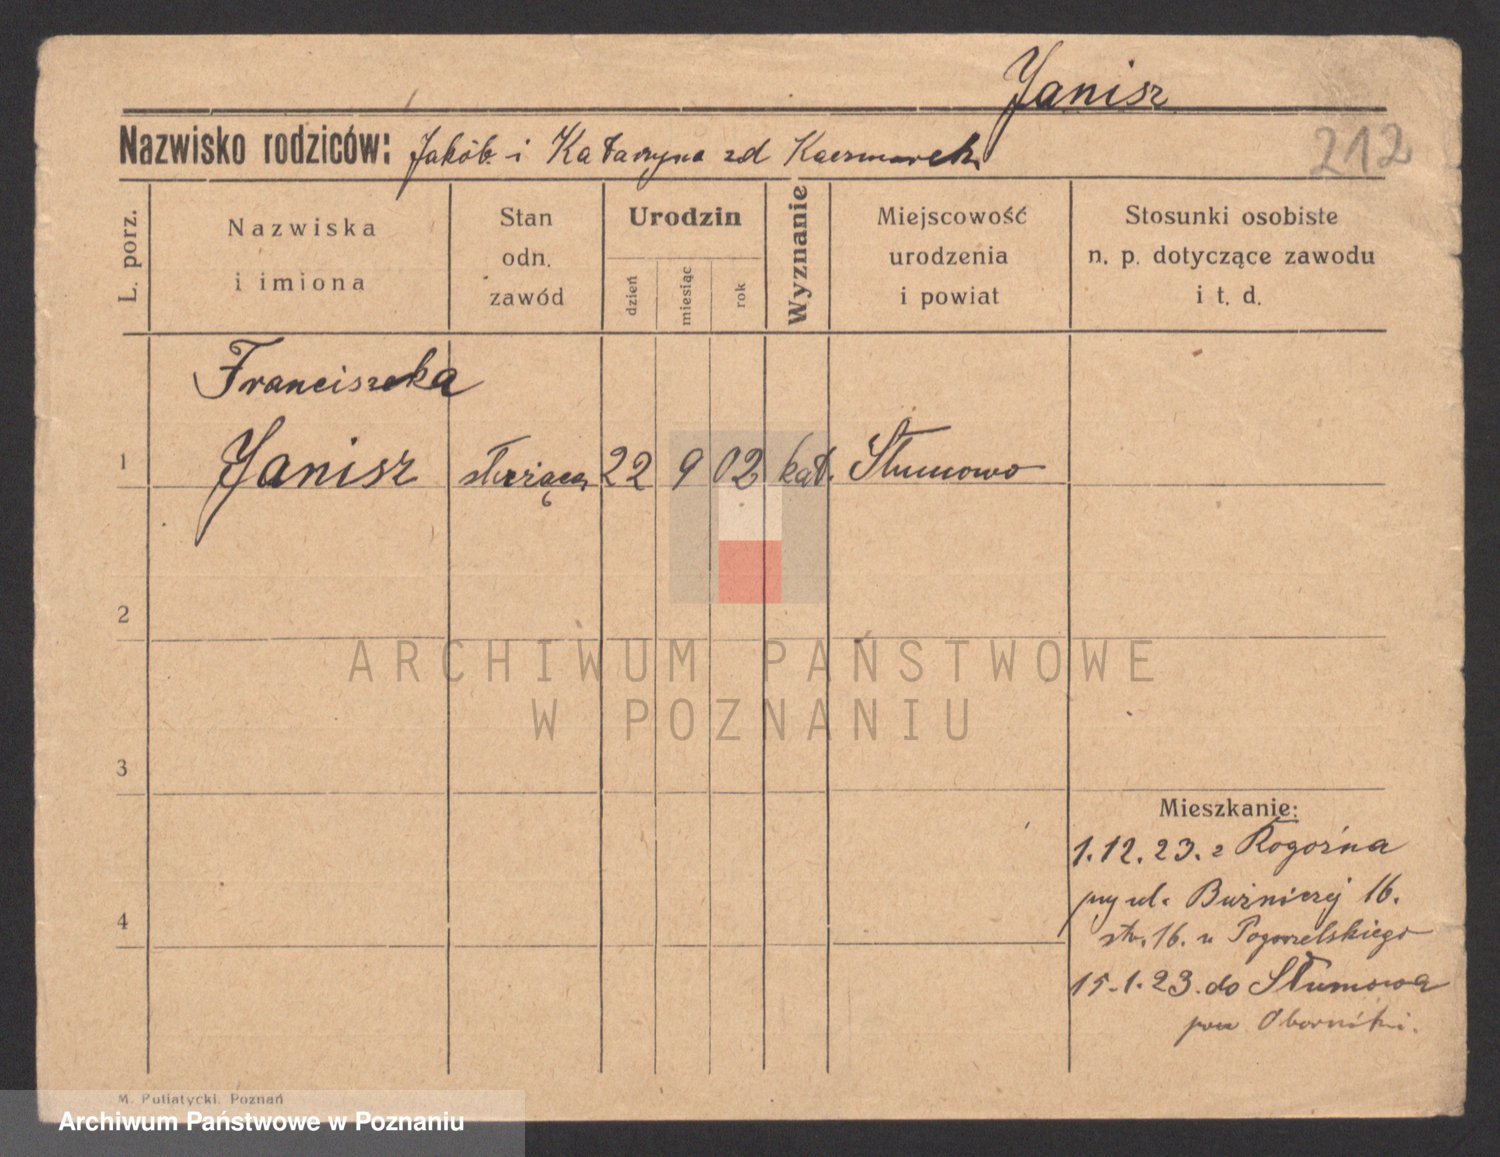 Janisz
212
Nazwisko rodziców: Jakób i Katarzyna zd Kaczmarek
L. porz.
Nazwiska
i imiona
Stan
odn.
zawód
Urodzin
dzień
miesiąc
rok
Wyznanie
Miejscowość
urodzenia
i powiat
Stosunki osobiste
n. p. dotyczące zawodu
i t. d.
Franciszka
1 Janisz służąca 22 9 02 kat. Słumowo
2
ARCHIWUM PAŃSTWOWE
W POZNANIU
3
Mieszkanie:
1.12.23. z Rogoźna
przy ul. Bużniczej 16.
4
str. 16. u Pogorzelskiego
15.1.23. do Słumowa
pow Oborniki.
M. Putiatycki. Poznań
Archiwum Państwowe w Poznaniu